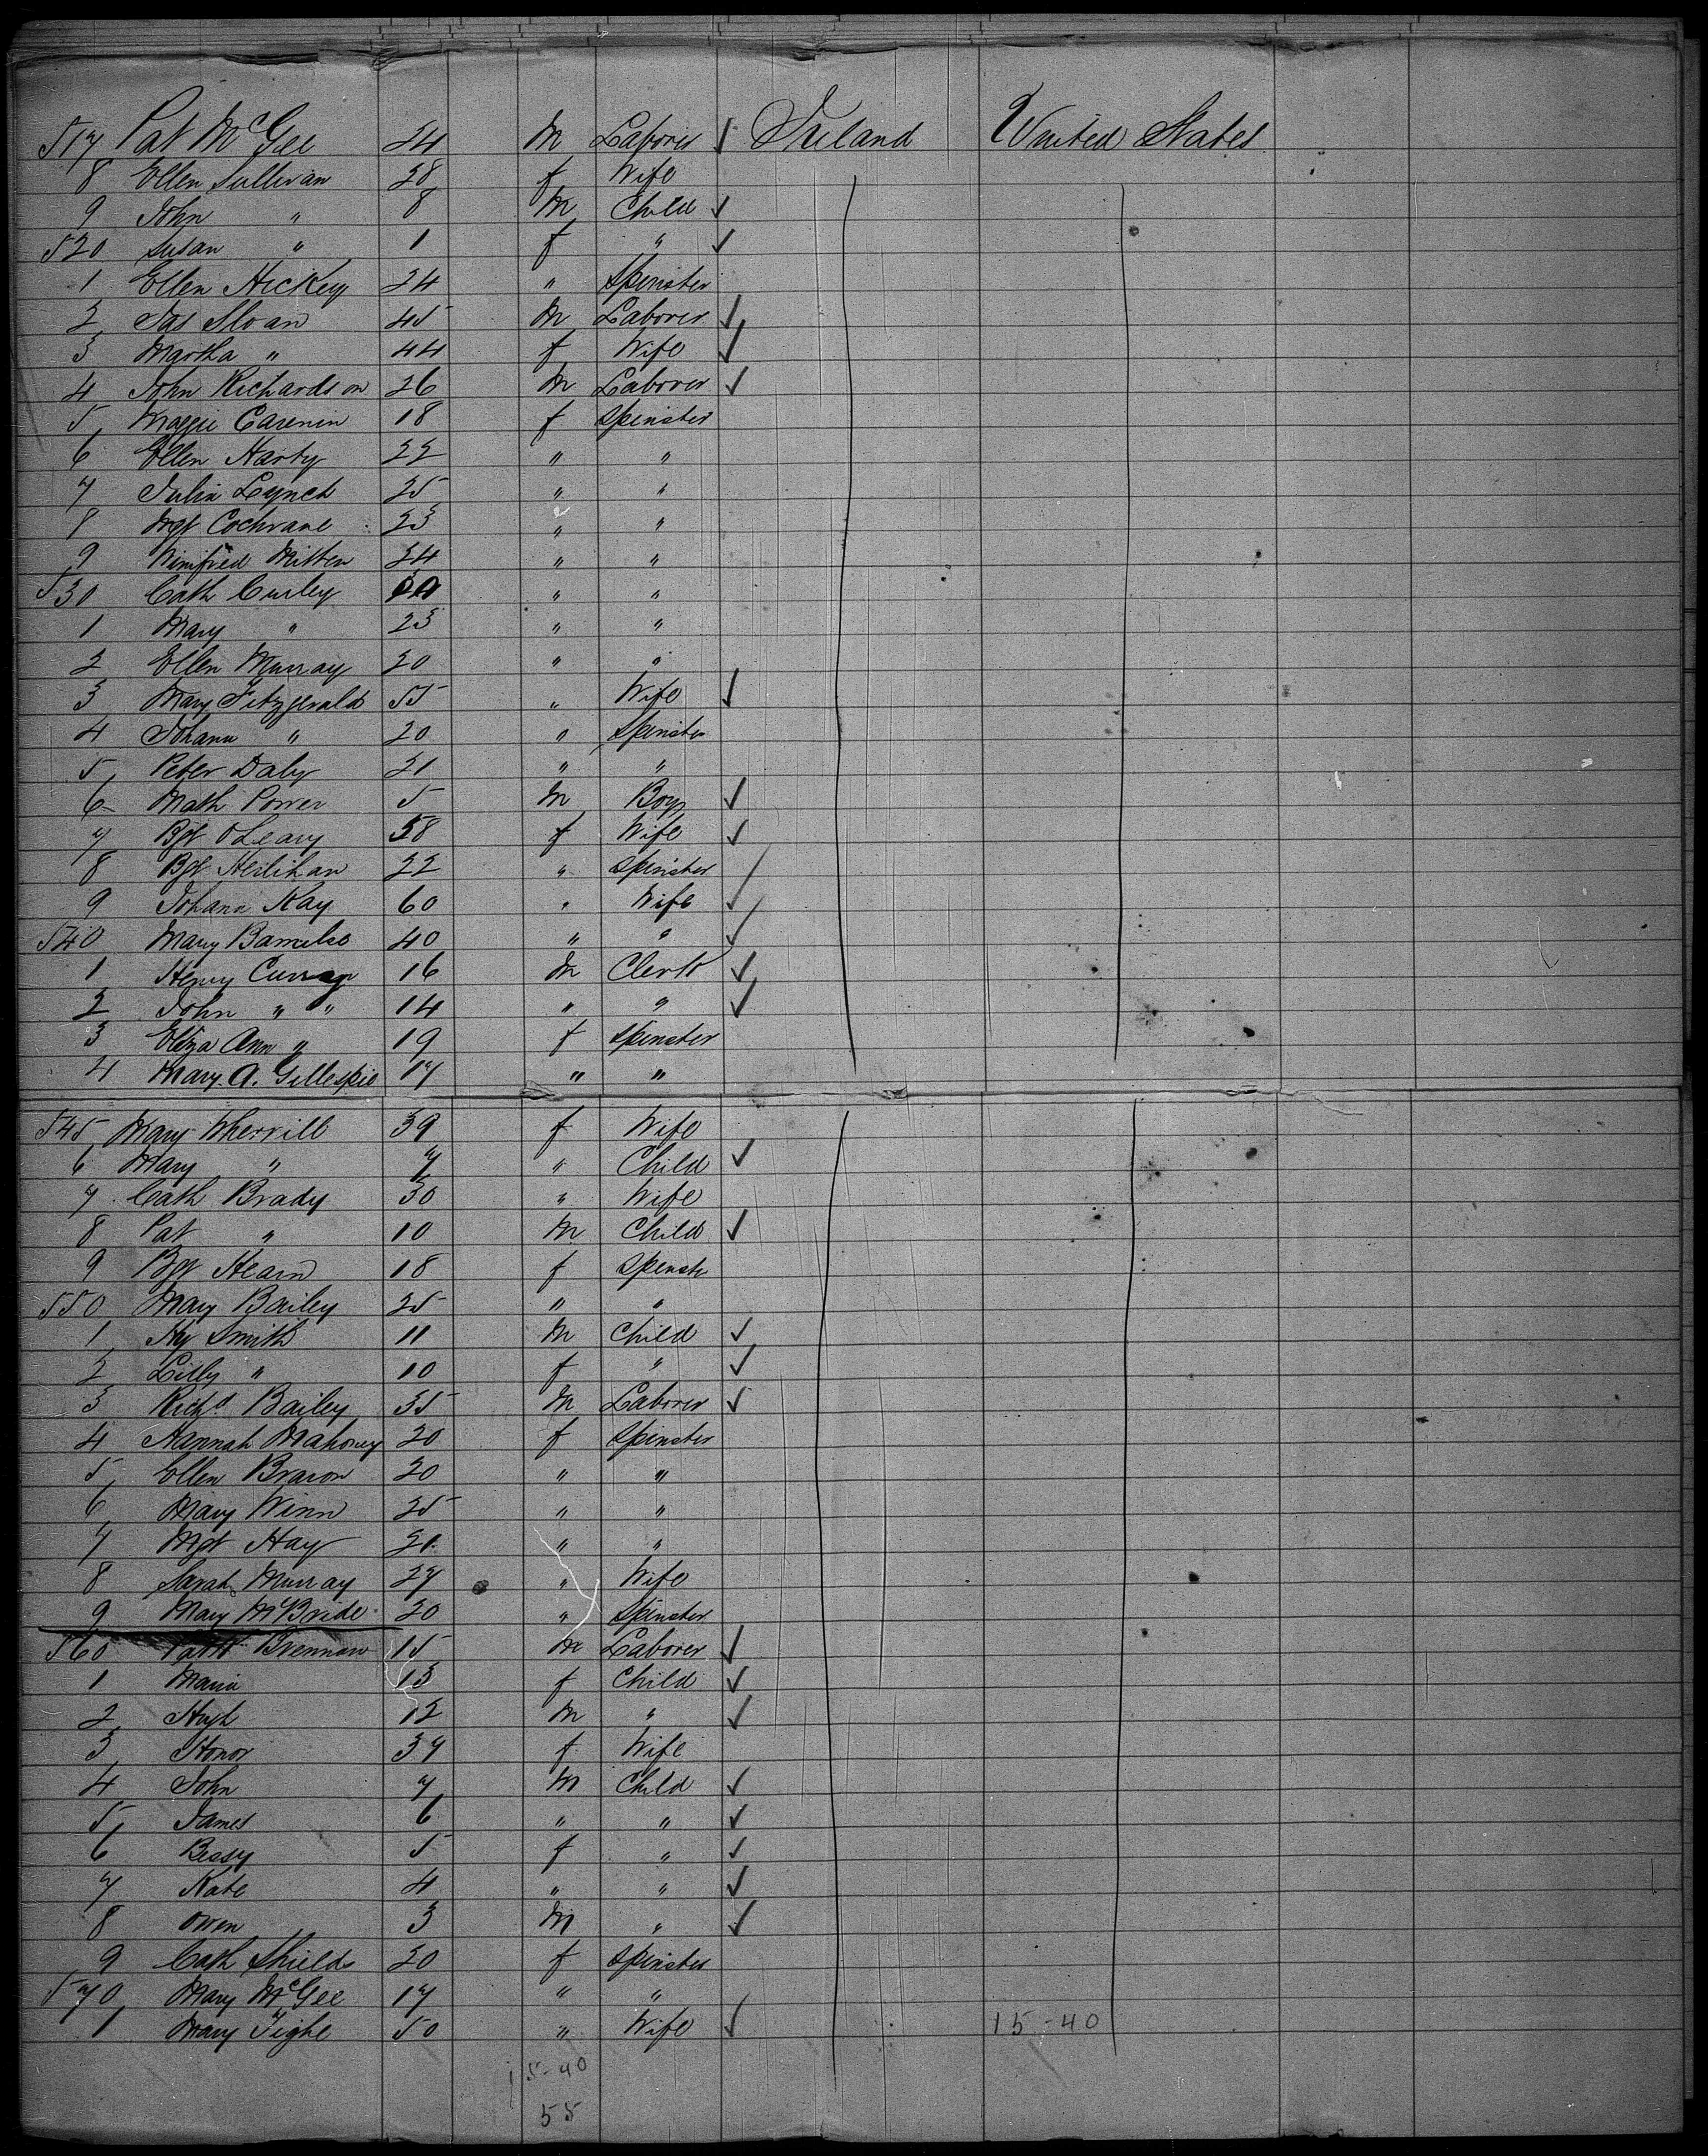 517 Pat McGee 24 M Laborer ✓ Ireland United States
8 Ellen Sullivan 28 f Wife
9 John " 8 M Child ✓
520 Susan " 1 f " ✓
1 Ellen Hickey 24 " Spinster
2 Jas Sloan 45 M Laborer ✓
3 Martha " 44 f Wife ✓
4 John Richardson 26 M Laborer ✓
5 Maggie 18 f Spinster
6 Ellen Harty 22 " "
7 Julia Lynch 25 " "
8 Mgt Cochrane 23 " "
9 Winifred Mitten 24 " "
530 Cath Curley " "
1 Mary " 23 " "
2 Ellen Murray 20 " "
3 Mary Fitzgerald 55 " Wife ✓
4 Johann " 20 " Spinster
5 Peter Daly 21 " "
6 Math Power 5 M Boy ✓
7 Bgt O'Leary 58 f Wife ✓
8 Bgt 22 " Spinster
9 Johann Kay 60 " Wife ✓
540 Mary 40 " " ✓
1 Henry 16 M Clerk ✓
2 John " " 14 " " ✓
3 Eliza Ann " 19 f Spinster
4 Mary A. Gillespie 17 " "
545 Mary Wherrill 39 f Wife
6 Mary " 7 " Child ✓
7 Cath Brady 30 " Wife
8 Pat " 10 M Child ✓
9 Bgt Hearn 18 f Spinstr
550 Mary Bailey 25 " "
1 Hy Smith 11 M Child ✓
2 Lilly " 10 f " ✓
3 Richd Bailey 35 M Laborer ✓
4 Hannah Mahoney 20 f Spinster
5 Ellen 20 " "
6 Mary Winn 25 " "
7 Mgt Hay 21 " "
8 Sarah Murray 27 " Wife
9 Mary McBride 20 " Spinster
560 Brennan 15 M Laborer ✓
1 Maria 13 f Child ✓
2 Hugh 12 M " ✓
3 Honor 37 f Wife
4 John 7 M Child ✓
5 James 6 " " ✓
6 Bessy 5 f " ✓
7 Kate 4 " " ✓
8 Owen 3 M " ✓
9 Cath Shields 20 f Spinster
570 Mary McGee 17 " "
1 Mary Tighe 50 " Wife ✓ 15-40
15-40
55